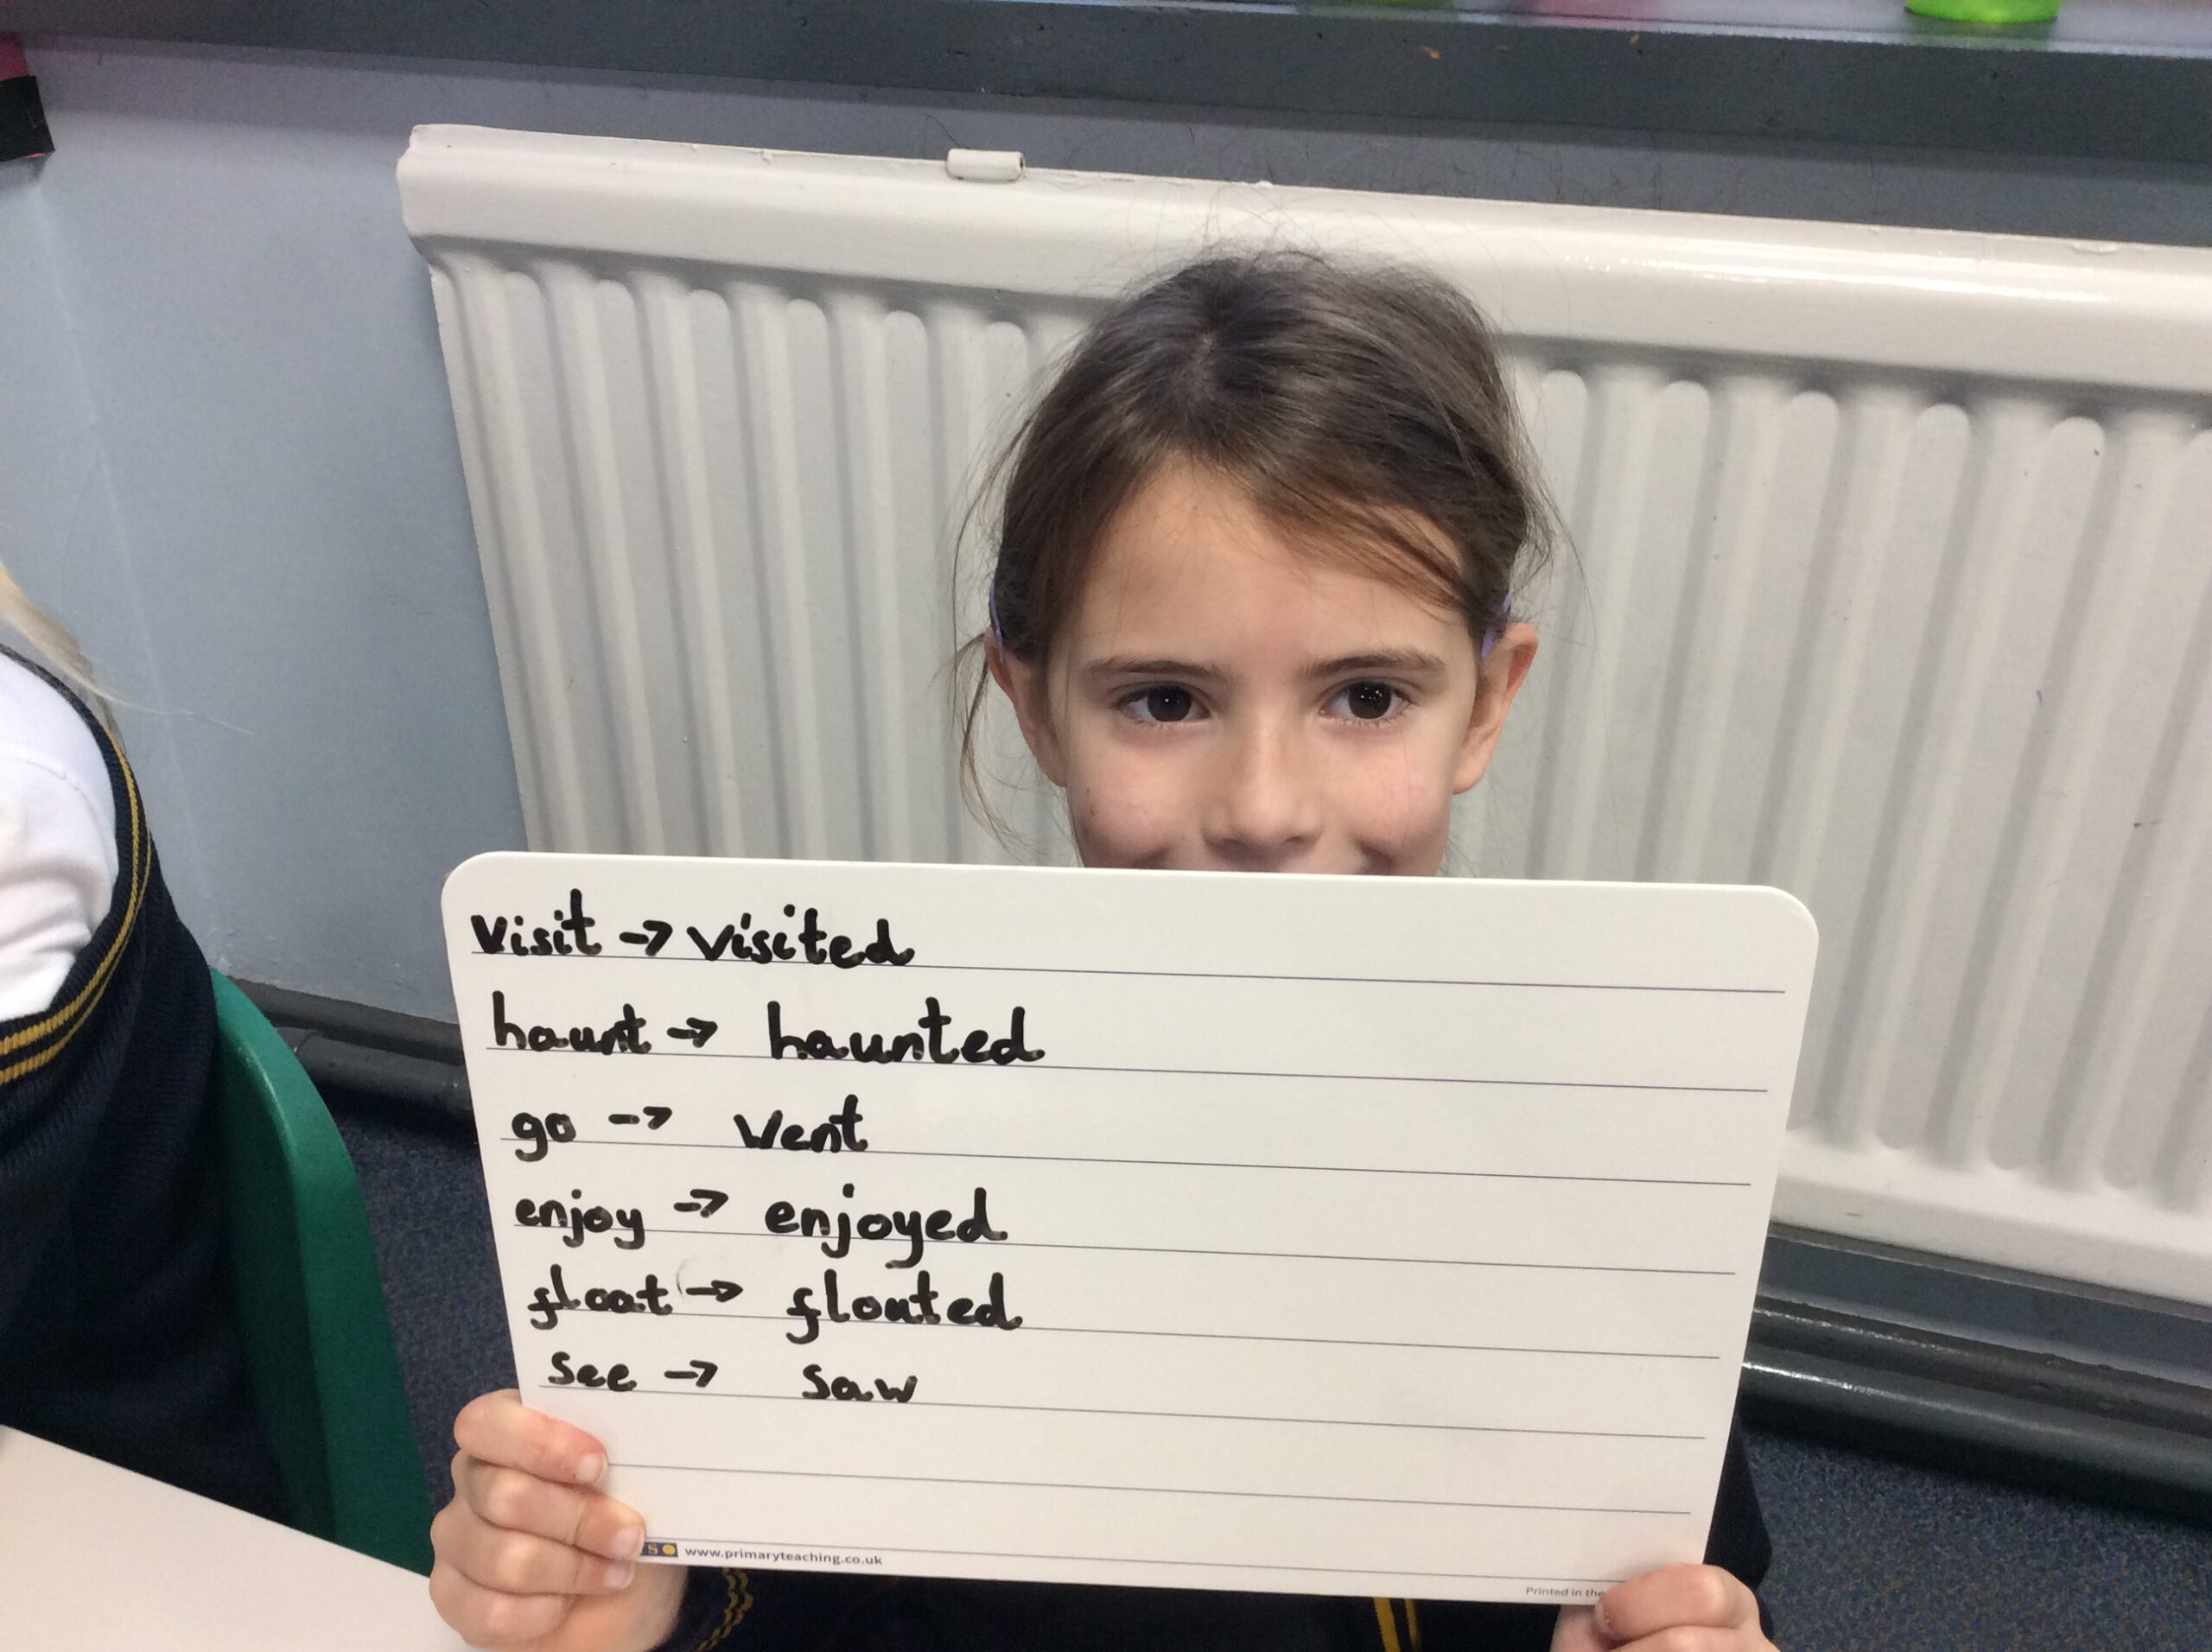 visit → visited
haunt → haunted
go → went
enjoy → enjoyed
float → floated
see → saw
TS www.primaryteaching.co.uk
Printed in the